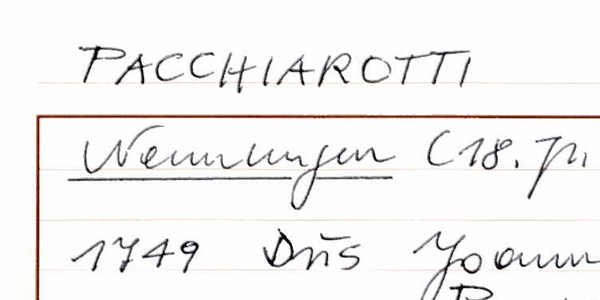 PACCHIAROTTI
Nennungen (18. Jh.
1749 Dn̄s Joann